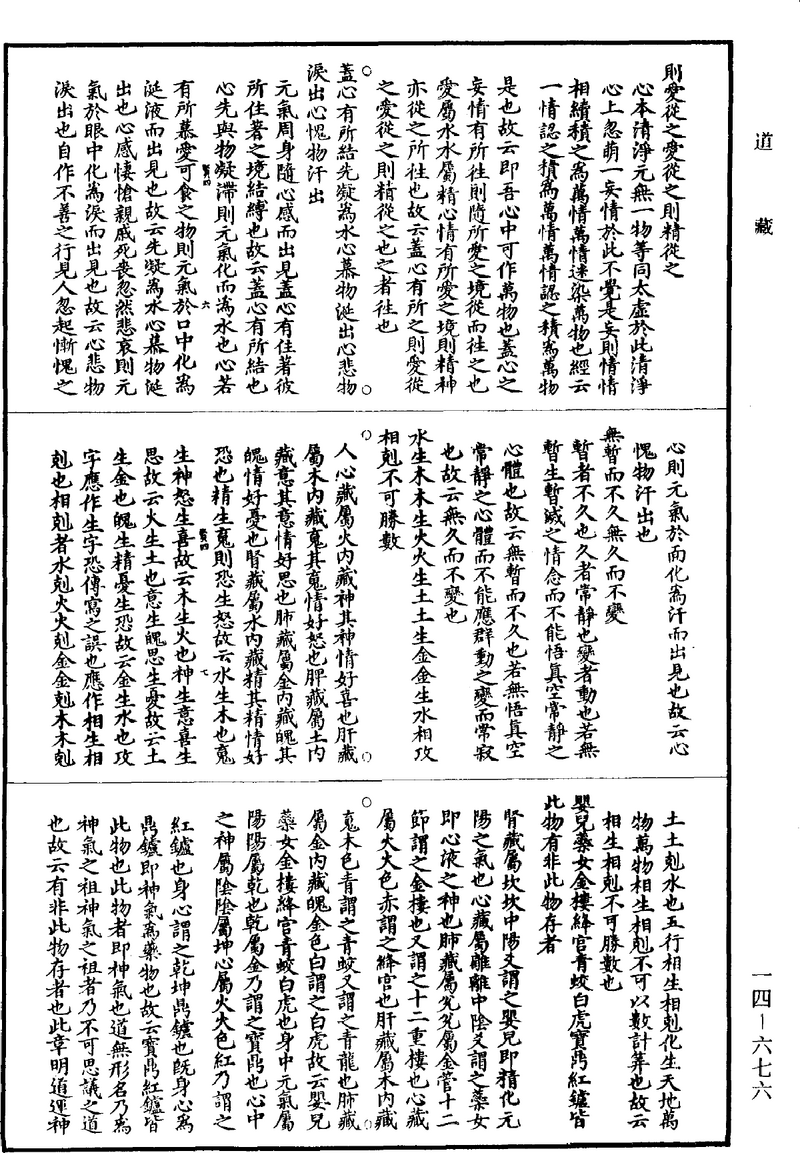 道藏
則愛從之愛從之則精從之
心本清淨元無一物等同太虛於此清淨
心上忽萌一妄情於此不覺是妄則情情
相續積之為萬情萬情迷染萬物也經云
一情認之積為萬情萬情認之積為萬物
是也故云即吾心中可作萬物也蓋心之
妄情有所往則隨所愛之境從而往之也
愛屬水水屬精心情有所愛之境則精神
亦從之所往也故云蓋心有所之則愛從
之愛從之則精從之也之者往也
蓋心有所結先凝為水心慕物涎出心悲物
淚出心愧物汗出
元氣周身隨心感而出見蓋心有住著彼
所住著之境結縛也故云蓋心有所結也
心先與物凝滯則元氣化而為水也心若
有所慕愛可食之物則元氣於口中化為
涎液而出見也故云先凝為水心慕物涎
出也心感悽愴親戚死喪忽然悲哀則元
氣於眼中化為淚而出見也故云心悲物
淚出也自作不善之行見人忽起慚愧之
心則元氣於面化為汗而出見也故云心
愧物汗出也
無暫而不久無久而不變
暫者不久也久者常靜也變者動也若無
暫生暫滅之情念而不能悟真空常靜之
心體也故云無暫而不久也若無悟真空
常靜之心體而不能應群動之變而常寂
也故云無久而不變也
水生木木生火火生土土生金金生水相攻
相剋不可勝數
人心藏屬火內藏神其神情好喜也肝藏
屬木內藏䰟其䰟情好怒也脾藏屬土內
藏意其意情好思也肺藏屬金內藏魄其
魄情好憂也腎藏屬水內藏精其精情好
恐也精生䰟則恐生怒故云水生木也䰟
生神怒生喜故云木生火也神生意喜生
思故云火生土也意生魄思生憂故云土
生金也魄生精憂生恐故云金生水也攻
字應作生字恐傳寫之誤也應作相生相
剋也相剋者水剋火火剋金金剋木木剋
土土剋水也五行相生相剋化生天地萬
物萬物相生相剋不可以數計筭也故云
相生相剋不可勝數也
嬰兒蘂女金樓絳宮青蛟白虎寶鼎紅鑪皆
此物有非此物存者
腎藏屬坎坎中陽爻謂之嬰兒即精化元
陽之氣也心藏屬離離中陰爻謂之蘂女
即心液之神也肺藏屬兊兊屬金管十二
節謂之金樓也又謂之十二重樓也心藏
屬火火色赤謂之絳宮也肝藏屬木內藏
䰟木色青謂之青蛟又謂之青龍也肺藏
屬金內藏魄金色白謂之白虎故云嬰兒
蘂女金樓絳宮青蛟白虎也身中元氣屬
陽陽屬乾也乾屬金乃謂之寶鼎也心中
之神屬陰陰屬坤心屬火火色紅乃謂之
紅鑪也身心謂之乾坤鼎鑪也既身心為
鼎鑪即神氣為藥物也故云寶鼎紅鑪皆
此物也此物者即神氣也道無形名乃為
神氣之祖神氣之祖者乃不可思議之道
也故云有非此物存者也此章明道運神
一四－六七六